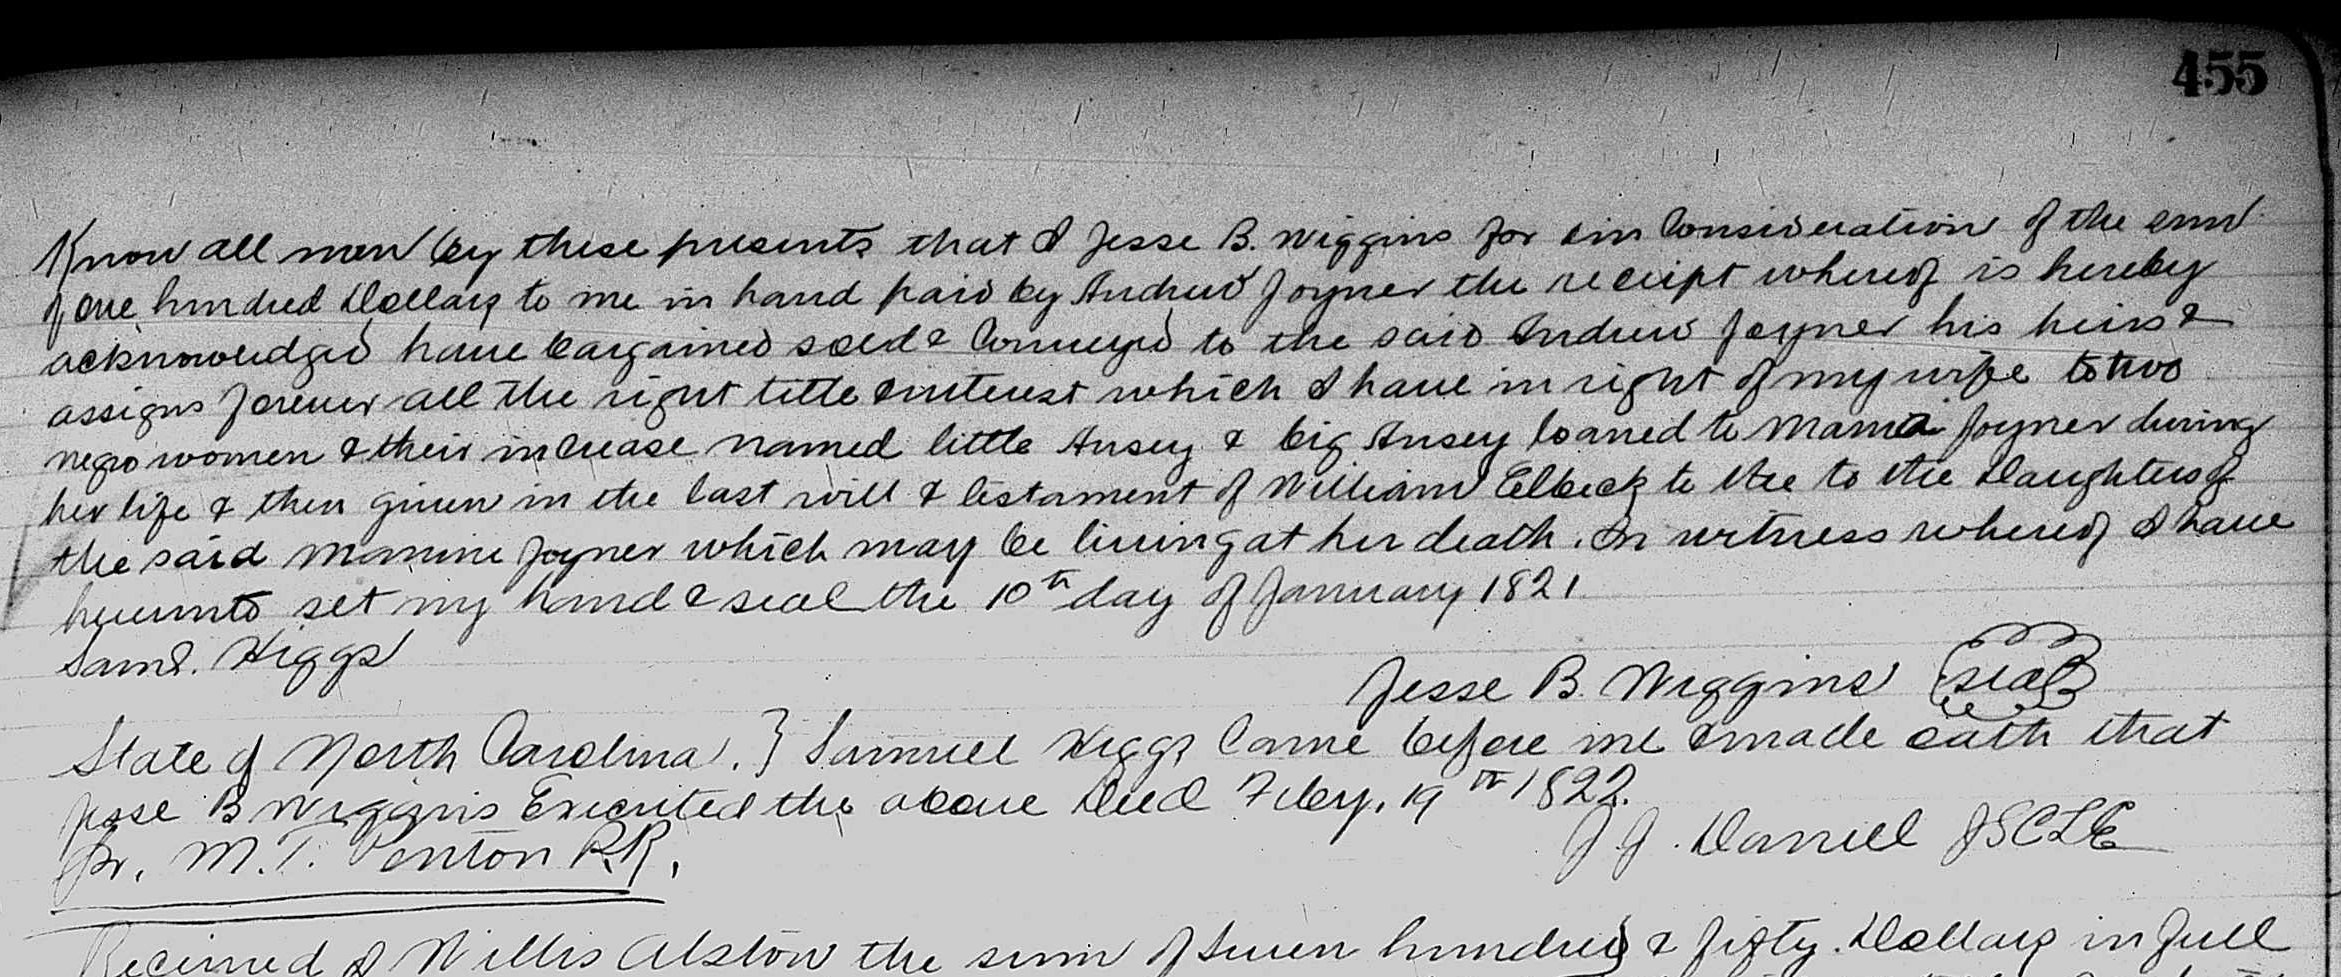 455
Know all men by these presents that I Jesse B. Wiggins for & in Consideration of the sum
of one hundred Dollars to me in hand paid by Andrew Joyner the receipt whereof is hereby
acknowledged have bargained sold & Conveyed to the said Andrew Joyner his heirs &
assigns forever all the right title & interest which I have in right of my wife to two
negro women & their increase named little Ansey & big Ansey loaned to Joyner during
her life & then given in the last will & testament of William Elbeck to the to the Daughters of
the said Joyner which may be living at her death. In witness whereof I have
hereunto set my hand & seal the 10th day of January 1821
Saml. Higgs
Jesse B. Wiggins seal
State of North Carolina. } Samuel Higgs Came before me & made oath that
Jesse B Wiggins Executed the above Deed Feby. 19th 1822.
J J. Daniel JSCL&E
M. T. Ponton P.R.
Received of Willis Alston the sum of Seven hundred & fifty Dollars in full